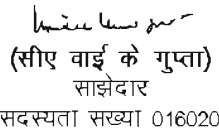 (सीए वाई के गुप्ता)
साझेदार
सदस्यता सख्या 016020